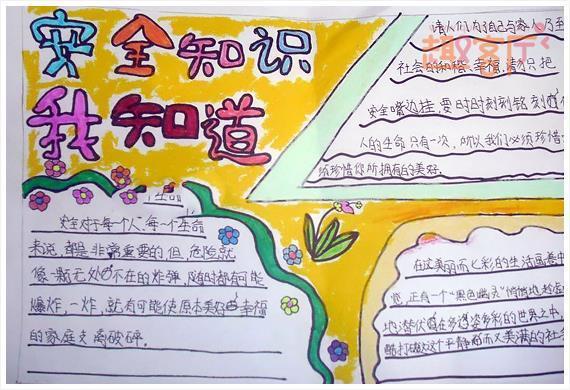 安全知识
我知道
趣客厅
请人们为了自己与家人乃至
社会的和稳、幸福，请别只把
安全嘴边挂，要时时刻刻铭刻
人的生命只有一次，所以我们必须珍惜
珍惜您所拥有的美好。
生命
安全对于每个人、每一个生命
来说，都是非常重要的但，危险就
像一颗无处不在的炸弹，随时都有可能
爆炸，一炸，就有可能使原本美好幸福
的家庭支离破碎。
在这美丽而七彩的生活画卷中
正有一个"黑色幽灵"悄悄地
地潜伏在多姿多彩的世界之中，
打破这个平静而又美满的社会